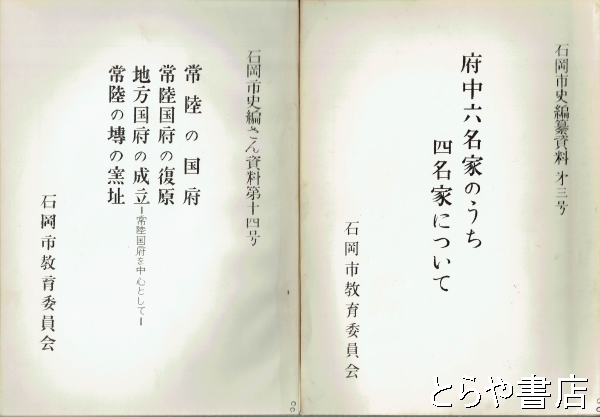 石岡市史編纂資料 才三号
府中六名家のうち
四名家について
石岡市教育委員会
石岡市史編さん資料第十四号
常陸の国府
常陸国府の復原
地方国府の成立—常陸国府を中心として—
常陸の塼の窯址
石岡市教育委員会
とらや書店